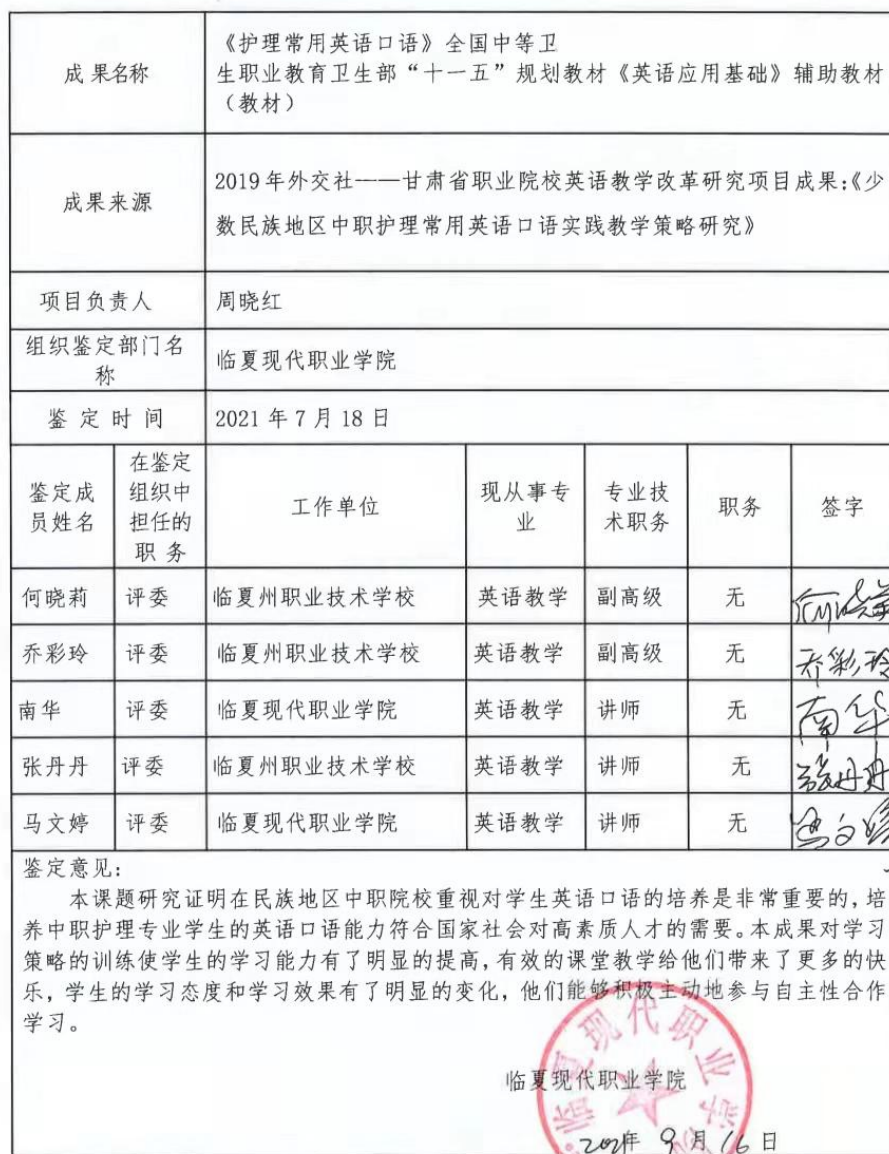 成果名称
《护理常用英语口语》全国中等卫
生职业教育卫生部“十一五”规划教材《英语应用基础》辅助教材
（教材）
成果来源
2019年外交社——甘肃省职业院校英语教学改革研究项目成果:《少
数民族地区中职护理常用英语口语实践教学策略研究》
项目负责人 周晓红
组织鉴定部门名
称
临夏现代职业学院
鉴定时间 2021年7月18日
鉴定成
员姓名
在鉴定
组织中
担任的
职务
工作单位
现从事专
业
专业技
术职务
职务
签字
何晓莉 评委 临夏州职业技术学校 英语教学 副高级 无 何晓莉
乔彩玲 评委 临夏州职业技术学校 英语教学 副高级 无 乔彩玲
南华 评委 临夏现代职业学院 英语教学 讲师 无 南华
张丹丹 评委 临夏州职业技术学校 英语教学 讲师 无 张丹丹
马文婷 评委 临夏现代职业学院 英语教学 讲师 无 马文婷
鉴定意见:
本课题研究证明在民族地区中职院校重视对学生英语口语的培养是非常重要的,培
养中职护理专业学生的英语口语能力符合国家社会对高素质人才的需要。本成果对学习
策略的训练使学生的学习能力有了明显的提高,有效的课堂教学给他们带来了更多的快
乐,学生的学习态度和学习效果有了明显的变化,他们能够积极主动地参与自主性合作
学习。
临夏现代职业学院
临夏现代职业学院
2021年9月16日